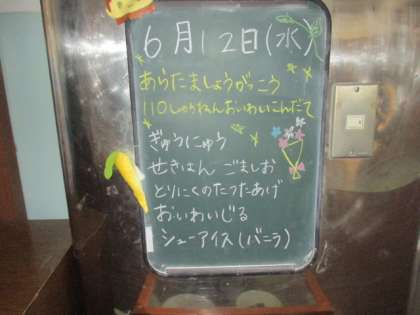 6月12日(水)
あらたましょうがっこう
110しゅうねんおいわいこんだて
ぎゅうにゅう
せきはん ごましお
とりにくのたつたあげ
おいわいじる
シューアイス(バニラ)